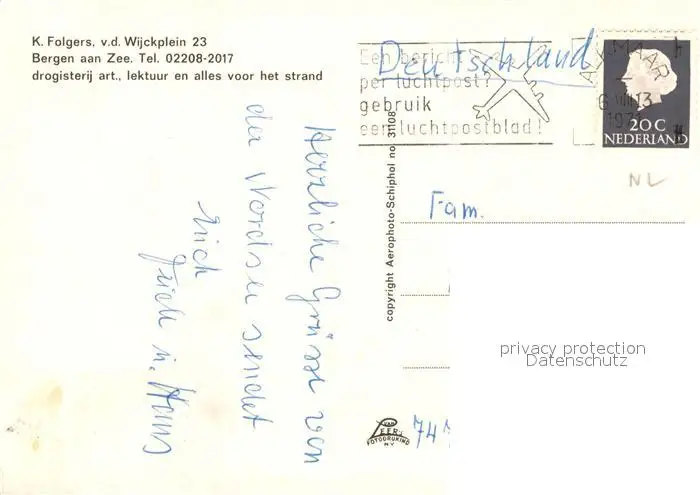 K. Folgers, v.d. Wijckplein 23
Bergen aan Zee. Tel. 02208-2017
drogisterij art., lektuur en alles voor het strand
Deutschland
Een bericht
per luchtpost?
gebruik
een luchtpostblad!
ALKMAAR
1971
20 C
NEDERLAND
NL
Fam.
Herzliche Grüsse von
der Nordsee sendet
Euch
u. Hans
copyright Aerophoto-Schiphol no. 31108
privacy protection
Datenschutz
VAN
LEER'S
FOTODRUKIND
N.V.
74